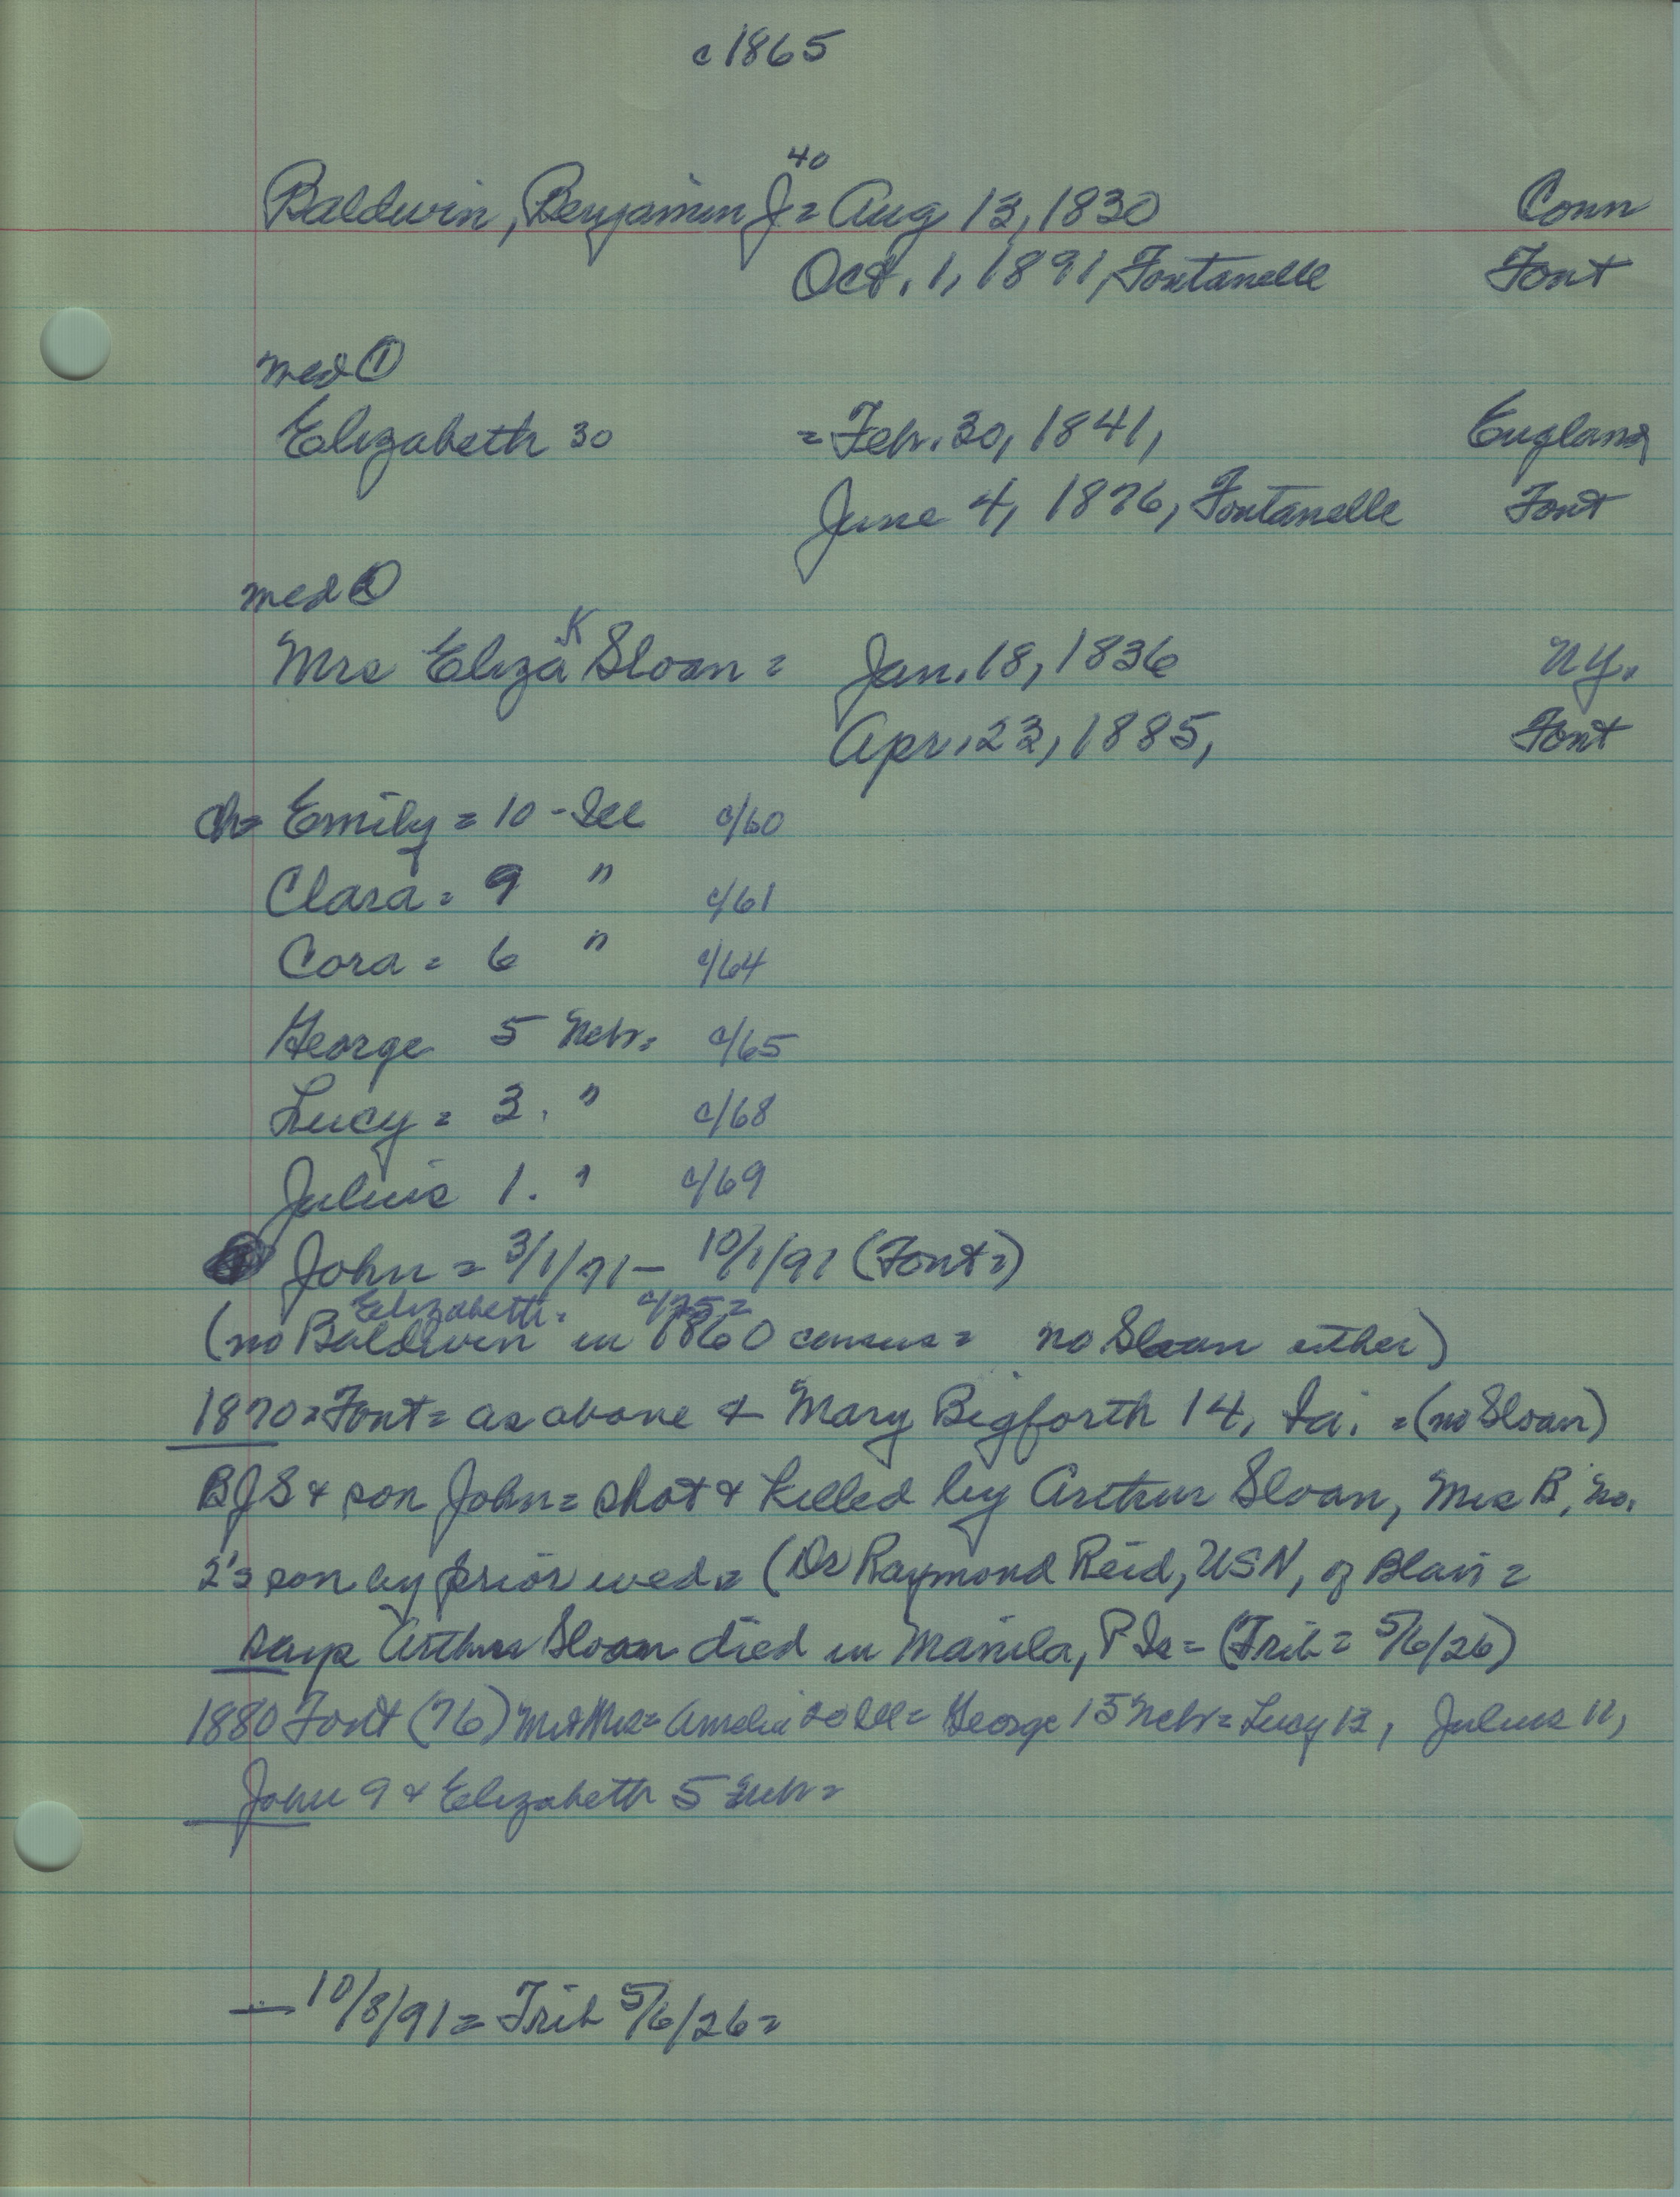 c 1865
40
Baldwin, Benjamin J = Aug 13, 1830 Conn
Oct. 1, 1891, Fontanelle Font
med ①
Elizabeth 30 = Febr. 30, 1841, England
June 4, 1876, Fontanelle Font
med ②
K
Mrs Eliza Sloan = Jan. 18, 1836 N.Y.
Apr. 23, 1885, Font
ch= Emily = 10 - Ill c/60
Clara = 9 " c/61
Cora = 6 " c/64
George 5 Nebr= c/65
Lucy = 3. " c/68
Julius 1. " c/69
John = 3/1/71 – 10/1/91 (Font=)
Elizabeth = c/75=
(no Baldwin in 1860 census = no Sloan either)
1870=Font= as above & Mary Bigforth 14, Ia. =(no Sloan)
BJS & son John= shot & killed by Arthur Sloan, Mrs B, no.
2's son by prior wed= (Dr Raymond Reid, USN, of Blair =
says Arthur Sloan died in Manila, P Is= (Trib = 5/6/26)
1880 Font (76) Mr & Mrs= Amelia 20 Ill= George 15 Nebr= Lucy 12, Julius 11,
John 9 & Elizabeth 5 Nebr=
— 10/8/91= Trib 5/6/26=